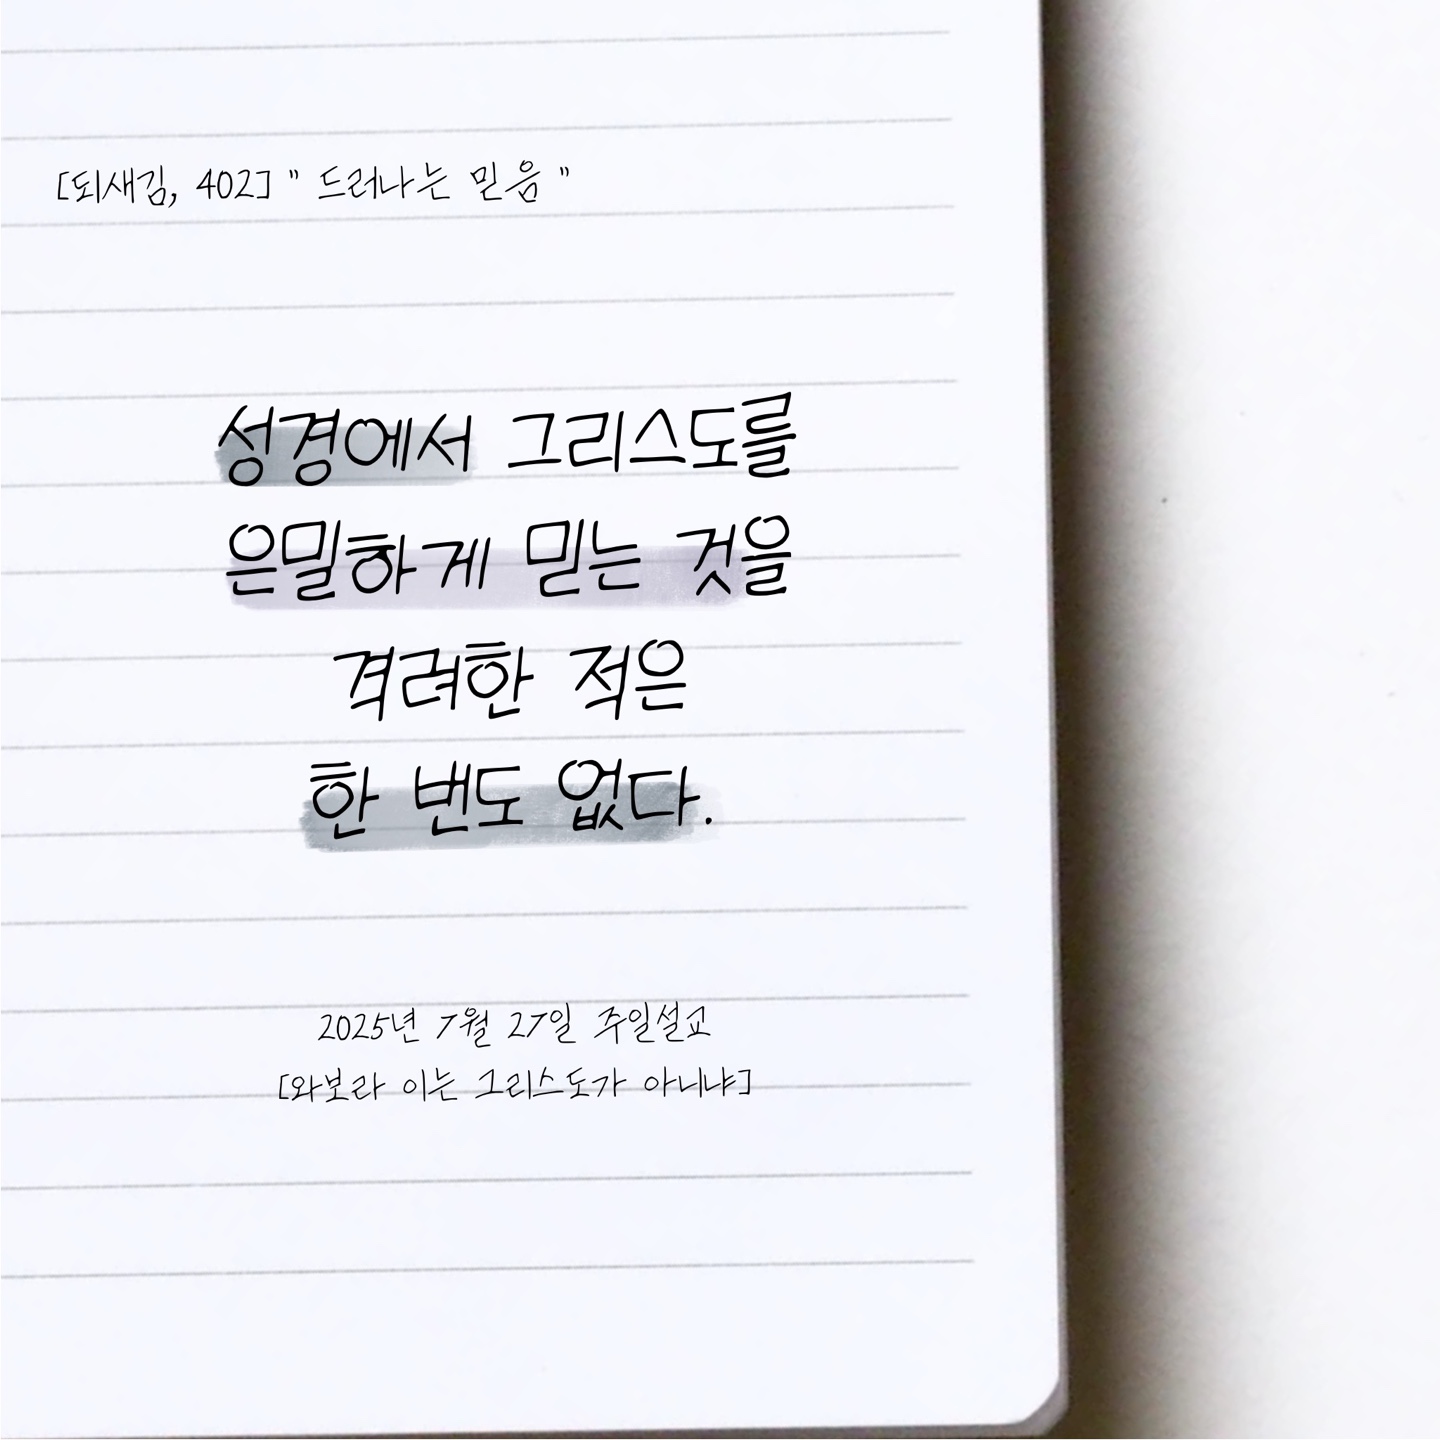 [되새김, 402] " 드러나는 믿음 "
성경에서 그리스도를
은밀하게 믿는 것을
격려한 적은
한 번도 없다.
2025년 7월 27일 주일설교
[와보라 이는 그리스도가 아니냐]